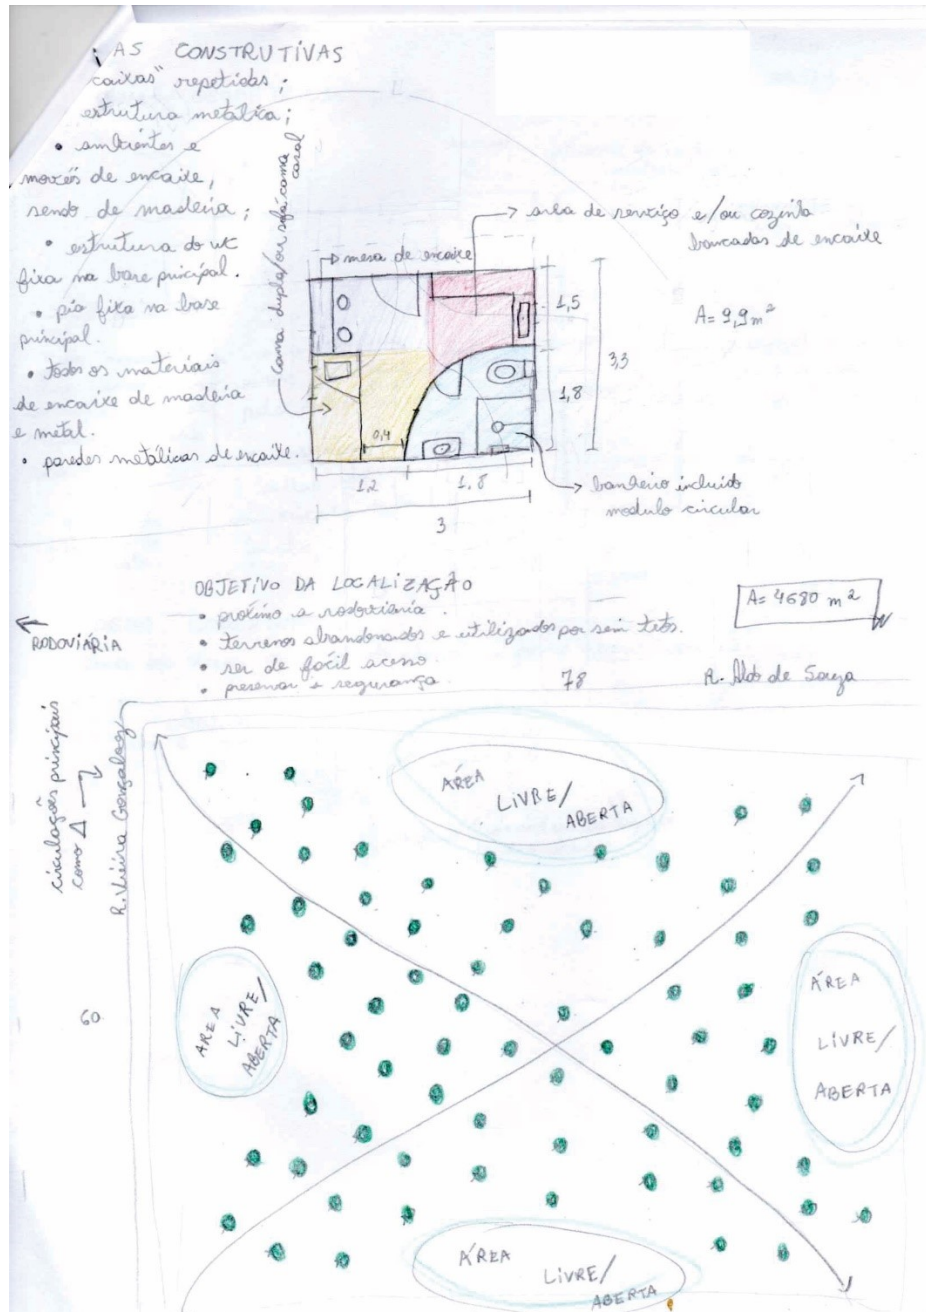 AS CONSTRUTIVAS
caixas" repetidas;
estrutura metálica;
• ambientes e
moveis de encaixe,
sendo de madeira;
• estrutura do wc
fixa na base principal.
• pia fixa na base
principal.
• todos os materiais
de encaixe de madeira
e metal.
• paredes metálicas de encaixe.
cama dupla/ou sofá cama
casal
mesa de encaixe
area de serviço e/ou cozinha
bancadas de encaixe
A= 9,9 m²
1,5
3,3
1,8
0,4
1,2
1,8
3
banheiro incluido
modulo circular
OBJETIVO DA LOCALIZAÇÃO
• próximo a rodoviária.
• terrenos abandonados e utilizados por sem teto.
• ser de fácil acesso.
• preservar + segurança.
A= 4680 m²
RODOVIÁRIA
78
R. Aldo de Souza
circulações principais
como
R. Vieira Gonçalves
60
ÁREA
LIVRE/
ABERTA
AREA
LIVRE/
ABERTA
ÁREA
LIVRE/
ABERTA
ÁREA
LIVRE/
ABERTA